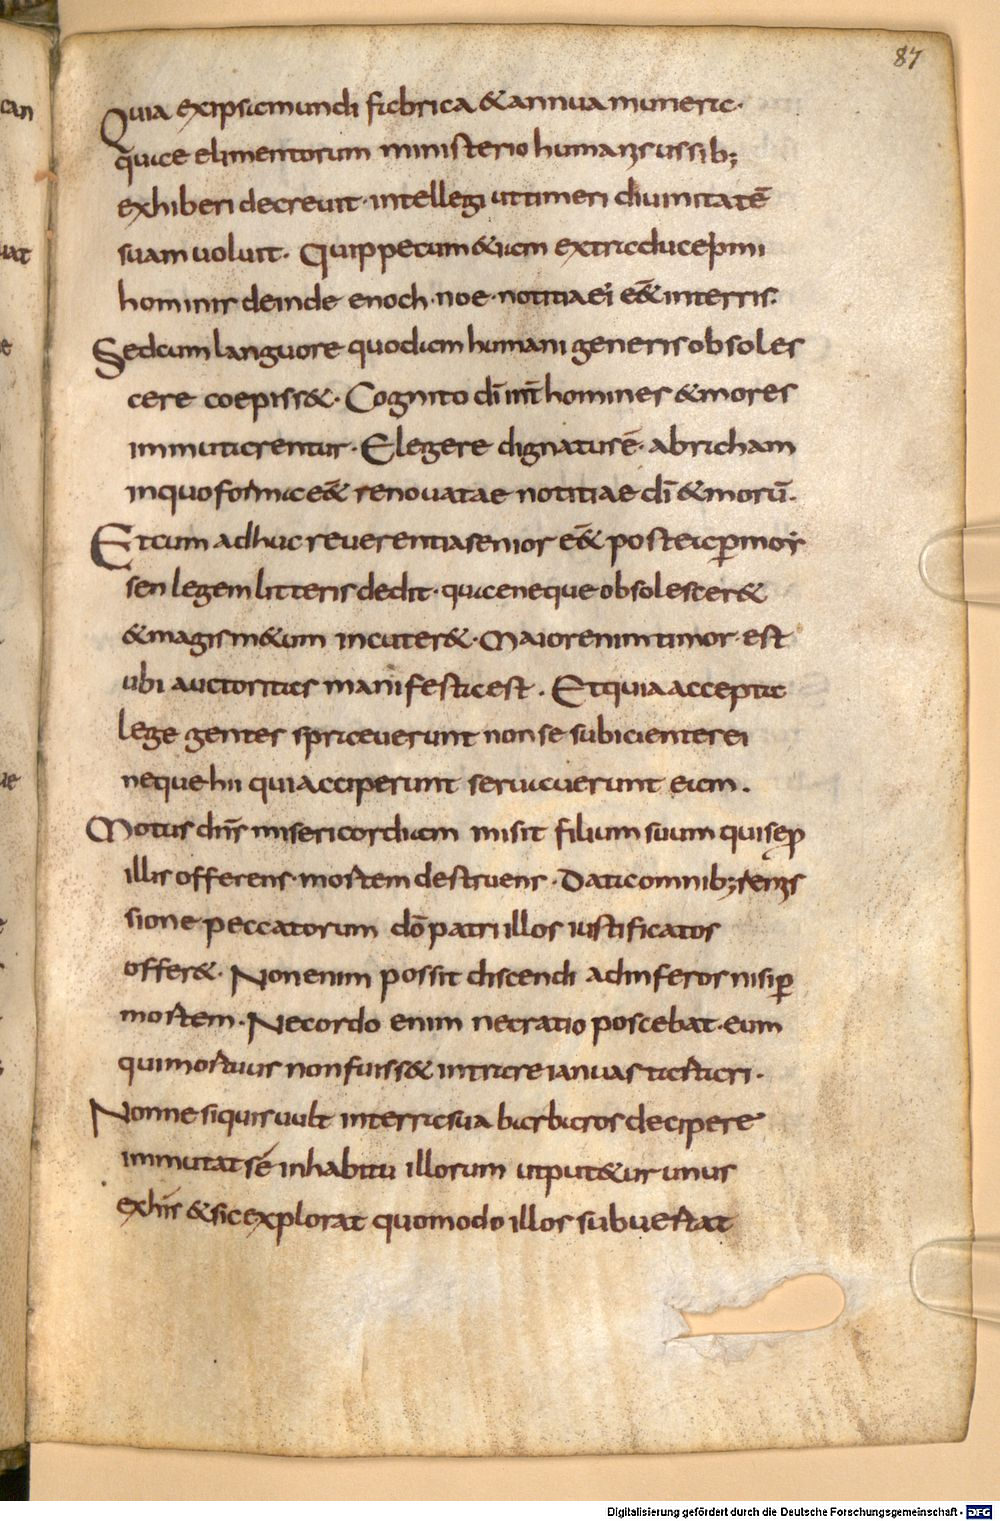 87
Quia ex ipsa mundi fabrica & annua munera·
quae elimentorum ministerio humanis ussib;
exhiberi decreuit· intellegi ut timeri diuinitatē
suam uoluit· Quippe cum & iam ex traduce primi
hominis deinde enoch· noe· notitia ei ēē& in terris·
Sed cum languore quodam humani generis obsoles
cere coepiss&· Cognito dī inī homines & mores
immutarentur· Elegere dignatus ē· abraham
in quo forma ēē& renouatae notitiae dī & morū·
Et cum adhuc reuerentia senior ēē& postea p̄ moy
sen legem litteris dedit· quae neque obsolescer&
& magis m&um incuter&· Maior enim timor· est
ubi auctoritas manifesta est· Et quia accepta
lege gentes spraeuerunt non se subicientes ei
neque hii qui acciperunt seruauerunt eam·
Motus dn̄s misericordiam misit filium suum qui sep̄
illis offerens· mortem destruens· Data omnib; remis
sione peccatorum dō patri illos iustificatos
offer&· Non enim possit discendi ad inferos nisi p̄
mortem· Nec ordo enim nec ratio poscebat· eum
qui mortuus non fuiss& intrare ianuas tartari·
Nonne si quis uult in terra sua barbaros decipere
immutat sé in habitu illorum ut put&ur unus
ex hís & sic explorat quomodo illos subuertat
can
uat
Digitalisierung gefördert durch die Deutsche Forschungsgemeinschaft - DFG